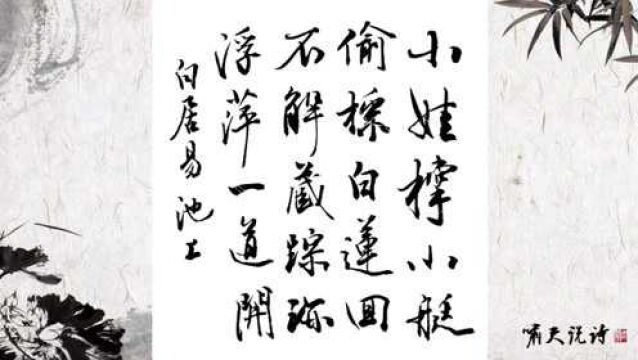 小娃撑小艇
偷採白莲回
不解藏踪迹
浮萍一道開
白居易池上
啸天说诗